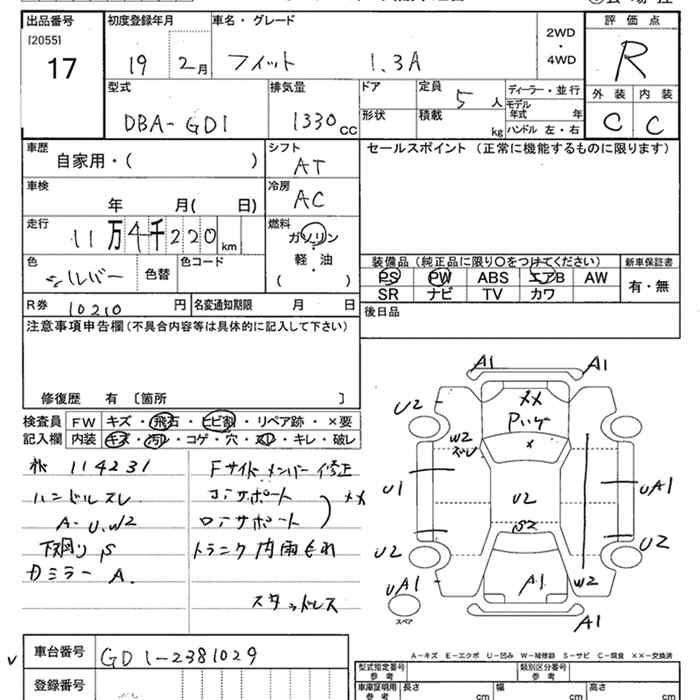 出品番号 [2055] 17
初度登録年月 19 2月
車名・グレード フィット 1.3A
2WD・4WD
評価点 R
外装 内装
C C
型式 DBA-GD1
排気量 1330cc
ドア
形状
定員 5人
積載 kg
ディーラー・並行
モデル年式 年
ハンドル 左・右
車歴 自家用・( )
シフト AT
セールスポイント (正常に機能するものに限ります)
車検 年 月( 日)
冷房 AC
走行 11万4千220km
燃料 ガソリン・軽・油 ( )
色 シルバー 色替 色コード
装備品(純正品に限り○をつけてください) 新車保証書
PS PW ABS エアB AW 有・無
SR ナビ TV カワ
R券 10210円 名変通知期限 月 日
後日品
注意事項申告欄(不具合内容等は具体的に記入して下さい)
修復歴 有 〔箇所 〕
検査員記入欄 FW キズ・飛石・ヒビ割・リペア跡・×要
内装 キズ・汚レ・コゲ・穴・スレ・キレ・破レ
114231 Fサイドメンバー修正
ハンドルスレ コアサポート
A・U.W2 ロアサポート ××
下廻り S トラニク内雨もれ
ミラー A.
スタッドレス
A1 A1
U2 ××
W2
×
U1 U2 UA1
S2
U2 U2
UA1 A1 W2
スペア A1
A-キズ E-エクボ U-凹み W-補修跡 S-サビ C-腐食 ××-交換済
車台番号 GD1-2381029
登録番号
型式指定番号 参考 類別区分番号 参考
車庫証明用 参考 長さ cm 幅 cm 高さ cm